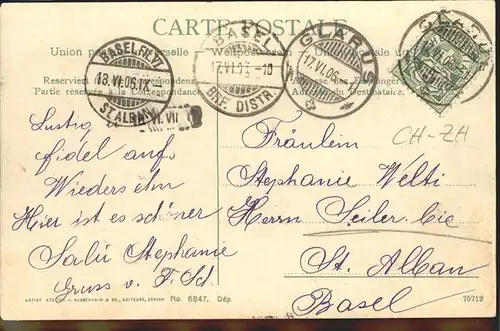 CARTE POSTALE
Union postale universelle — Weltpostverein
Reserviert Correspondenz.
Partie réservée à la correspondance.
Adresse des Empfängers
Adresse du Destinataire.
BASEL FIL. VI
18.VI.06.IX
ST. ALBAN
BASEL
17.VI.0 -10
BRF. DISTR.
GLARUS
17.VI.06.
GLARUS
VI.06
CH-ZH
Lustig
fidel auf
Wiedersehn
Hier ist es schöner
Salü Stephanie
Gruss v. F. Sch
Fräulein
Stephanie Welti
Herrn Seiler Cie
St. Alban
Basel
EDITEURS, ZÜRICH
No. 6847. Dép.
70712